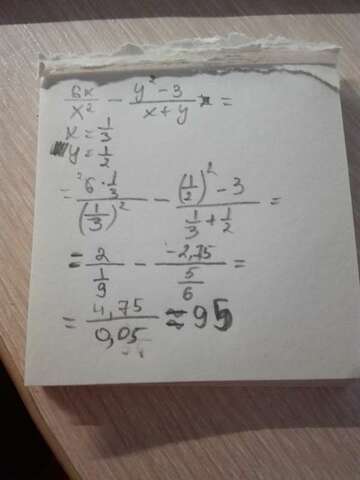 6x/x² - (y²-3)/(x+y) =
x = 1/3
y = 1/2
= (²6·1/3)/(1/3)² - ((1/2)²-3)/(1/3+1/2) =
= 2/(1/9) - (-2,75)/(5/6) =
= 4,75/0,05 ≈ 95